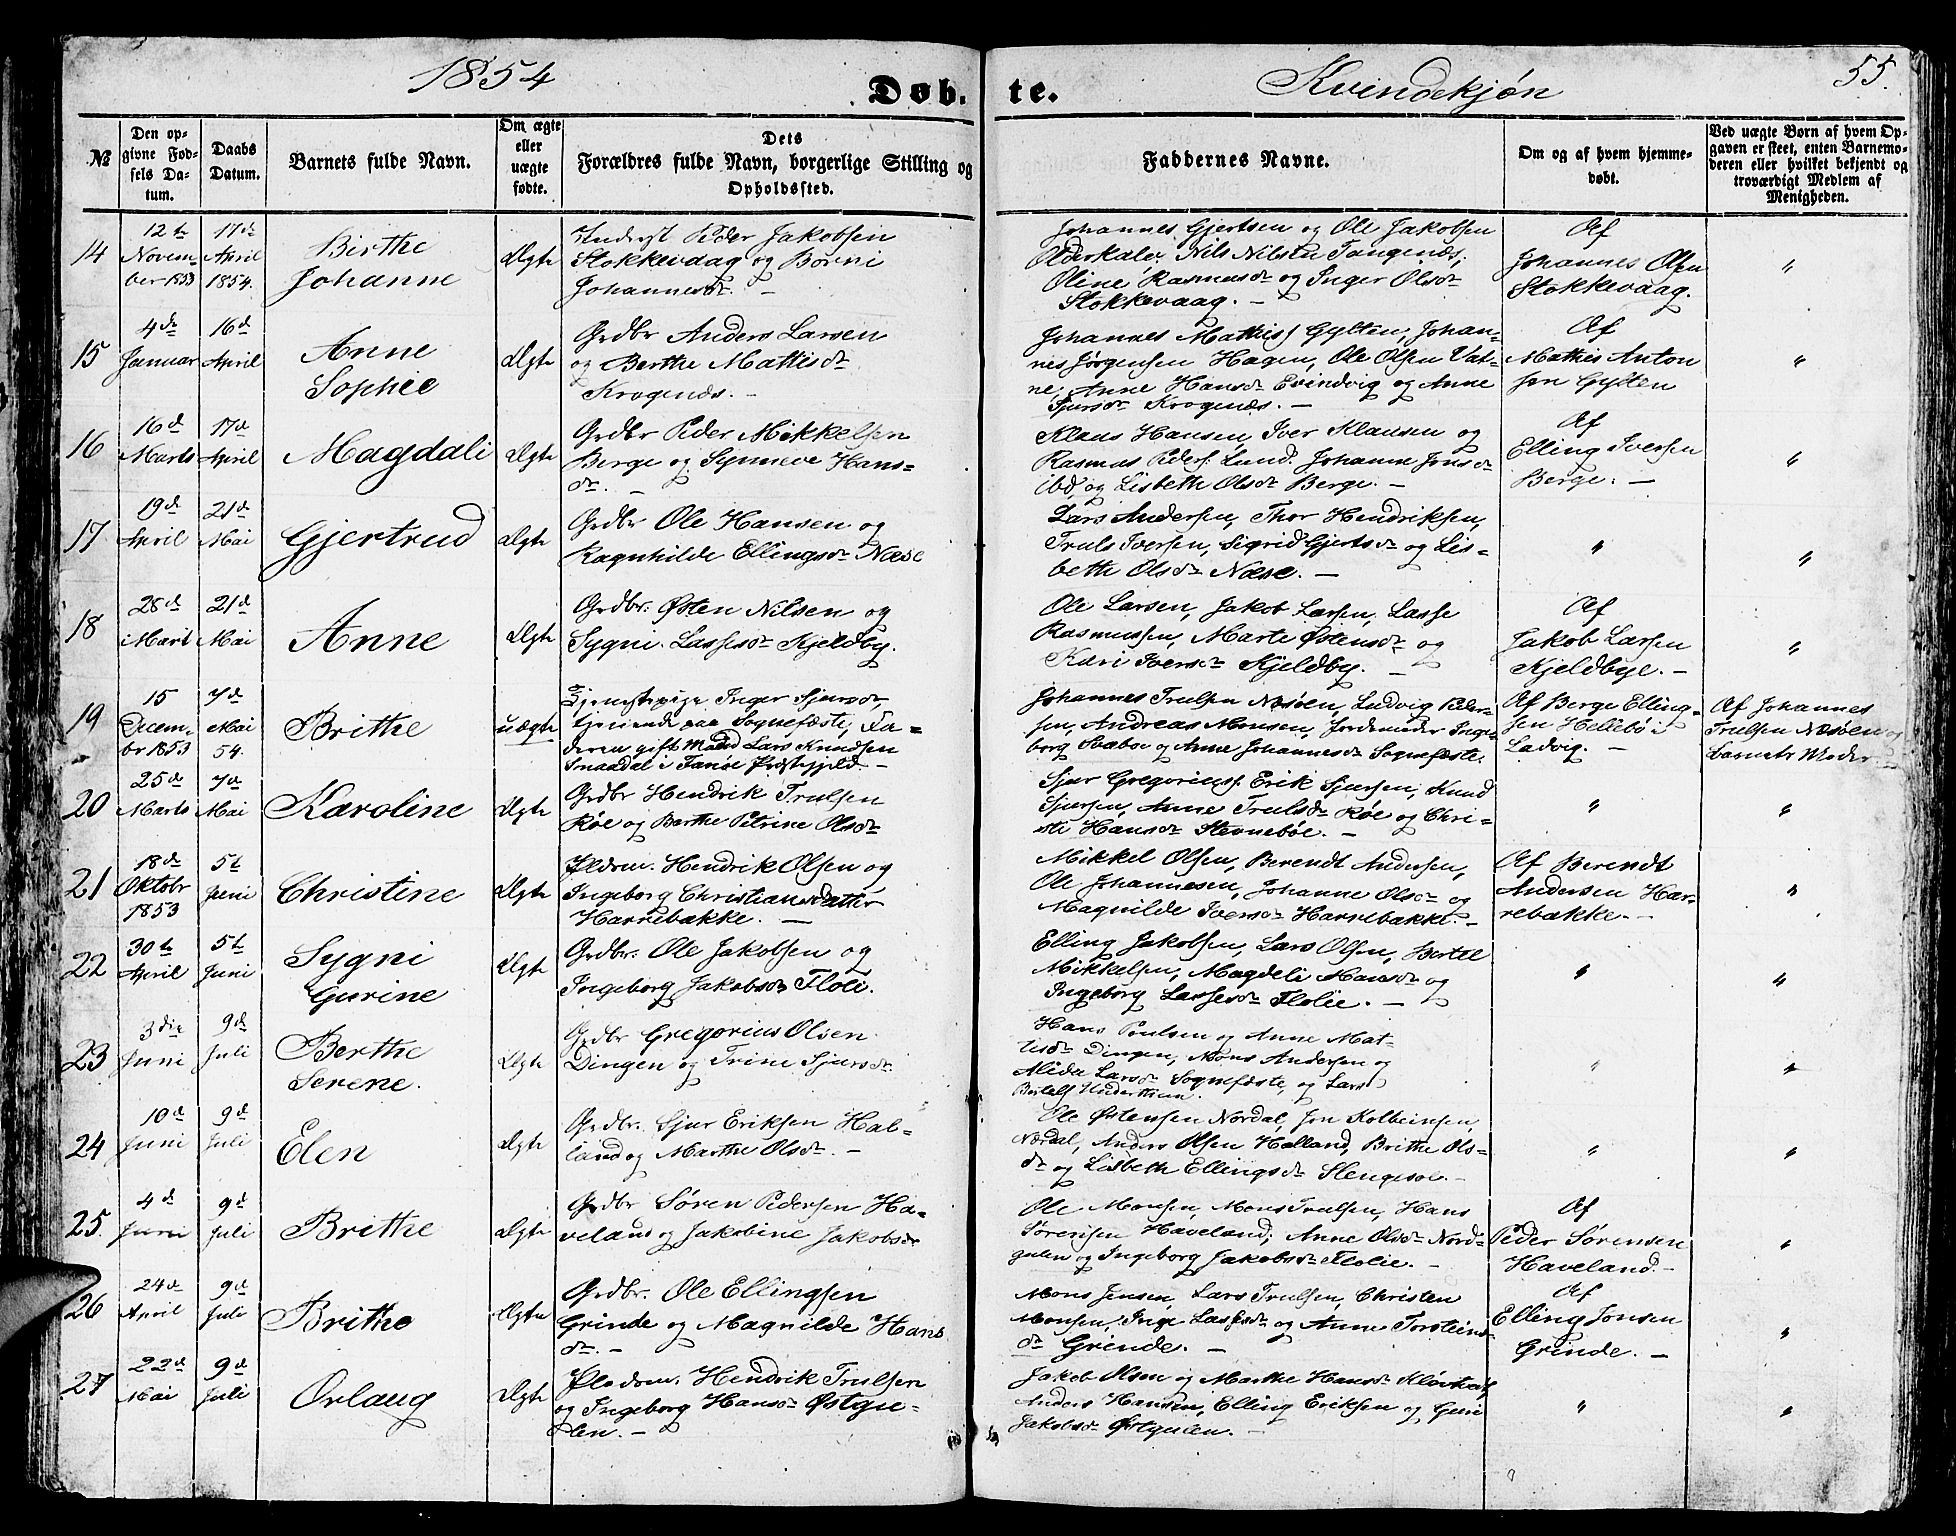 1854
Døb.
te.
Kvindekjøn
55.
№
Den op-
givne Fød-
sels Da-
tum.
Daabs
Datum.
Barnets fulde Navn.
Om ægte
eller
uægte
fødte.
Dets
Forældres fulde Navn, borgerlige Stilling og
Opholdssted.
Faddernes Navne.
Om og af hvem hjemme-
døbt.
Ved uægte Børn af hvem Op-
gaven er skeet, enten Barnemo-
deren eller hvilket bekjendt og
troværdigt Medlem af
Menigheden.
14
12te
Novem
ber 1853
17de
April
1854.
Birthe
Johanne
Ægte
Inderst Peder Jakobsen
Stokkevaag og Børni
Johannesdr. —
Johannes Gjertsen og Ole Jakobsen
Nils Nilsen Tangenæs,
Oline Rasmusdr og Inger Olsdr
Stokkevaag. —
Af
Johannes Olsen
Stokkevaag.
"
15
4de
Januar
16de
April
Anne
Sophie
Ægte
Grdbr Anders Larsen
og Berthe Mattisdr
Krogenæs. —
Johannes Mathiss Gylten, Johan-
nes Jørgensen Hagen, Ole Olsen Vat-
ne, Anne Hansdr Evindvig og Anne
Sjursdr Krogenæs. —
Af
Mathis Anton
sen Gylten
"
16
16d
Marts
17d
April
Magdali
Ægte
Grdbr Peder Mikkelsen
Berge og Synneve Hans-
dr. —
Klaus Hansen, Iver Klausen og
Rasmus Peders. Lund. Johanne Jonsdr
ibd, og Lisbeth Olsdr Berge. —
Af
Elling Iversen
Berge. —
"
17
19d
April
21d
Mai
Gjertrud
Ægte
Grdbr Ole Hansen og
Ragnhilde Ellingsdr Næse
Lars Andersen, Thor Hendriksen,
Truls Iversen, Sigrid Gjertsdr og Lis-
beth Olsdr Næse. —
"
"
18
28d
Mart
21d
Mai
Anne
Ægte
Grdbr. Østen Nilsen og
Sygni Lassesdr Kjeldby.
Ole Larsen, Jakob Larsen, Lasse
Rasmussen, Marte Østensdr og
Kari Iversdr Kjeldby. —
Af
Jakob Larsen
Kjeldbye. —
"
19
15
Decem-
br 1853
7d
Mai
54.
Brithe
uægte
Tjenestepige Inger Sjursdr,
tjenende paa Sognefæste, Fa-
deren gift Mand Lars Knudsen
Smaadal i Præstegjeld. —
Johannes Trulsen Nesøen, Ludvig Peder-
sen, Andreas Monsen, Jordemoder Inge-
borg Svabø og Anne Johannesdr Sognefæste.
Af Berge Elling-
sen Hellebø i
Ladvig. —
Af Johannes
Trulsen Nesøen og
barnets Moder. —
20
25d
Marts
7d
Mai
Karoline
Ægte
Grdbr Hendrik Trulsen
Røe og Berthe Petrine Olsdr
Sjur Gregorius. Erik Sjursen, Knud
Sjursen, Anne Trulsdr Røe og Chri-
sti Hansdr Stevnebøe. —
"
"
21
18d
Oktobr
1853
5t
Juni
Christine
Ægte
Pldsm. Hendrik Olsen og
Ingeborg Christiansdatter
Harrebække. —
Mikkel Olsen, Berendt Andersen,
Ole Johannesen, Johanne Olsdr og
Magnilde Iversdr Harrebække. —
Af Berendt
Andersen Har-
rebække. —
"
22
30t
April
5t
Juni
Sygni
Gurine
Ægte
Grdbr. Ole Jakobsen og
Ingeborg Jakobsdr Floli.
Elling Jakobsen, Lars Olsen, Bertel
Mikkelsen, Magdeli Hansdr og
Ingeborg Lassesdr Flolie. —
"
"
23
3die
Juni
9d
Juli
Berthe
Serene.
Ægte
Grdbr Gregorius Olsen
Dingen og Trine Sjursdr.
Hans Poulsen og Anne Mat-
tisdr Dingen, Mons Andersen og
Alida Larsdr Sognefæste, og Lars
"
"
24
10d
Juni
9d
Juli
Elen
Ægte
Grdbr. Sjur Eriksen Hal-
land og Marthe Olsdr. —
Ole Østensen Nordal, Jon Kolbeinsen,
Nordal, Anders Olsen Halland, Brithe Ols-
dr og Lisbeth Ellingsdr Slengesol. —
"
"
25.
4d
Juni
9d
Juli
Brithe
Ægte
Grdbr Søren Pedersen Ha-
veland og Jakobine Jakobsdr
Ole Monsen, Mons Trulsen, Hans
Sørensen Haveland, Anne Olsdr Nord-
gulen og Ingeborg Jakobsdr Flolie. —
Af
Peder Sørensen
Haveland. —
"
26
24d
April
9d
Juli
Brithe
Ægte
Grdbr. Ole Ellingsen
Grinde og Magnilde Hans
dr. —
Mons Jensen, Lars Trulsen, Christen
Monsen, Inge Lassesdr og Anne Torsteins-
dr Grinde. —
Af
Elling Jonsen
Grinde. —
"
27
22d
Mai
9d
Juli
Orlaug
Ægte
Pladsm. Hendrik Trulsen
og Ingeborg Hansdr Østgu-
len. —
Jakob Olsen og Marthe Hansdr
Anders Hansen, Elling Eriksen og Guri
Jakobsdr Østgulen. —
"
"